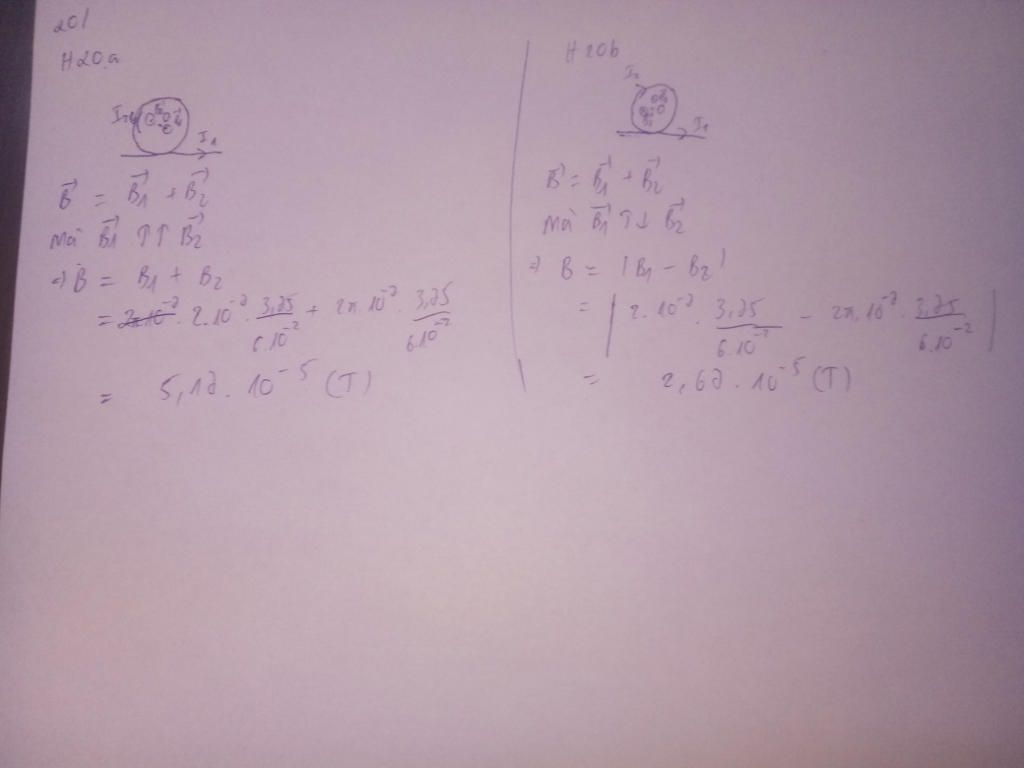 20/
H20.a
I2
I1
B⃗ = B⃗1 + B⃗2
mà B⃗1 ↑↑ B⃗2
⇒ B = B1 + B2
= 2.10⁻⁷ . 3,75/6.10⁻² + 2π.10⁻⁷ . 3,75/6.10⁻²
= 5,17.10⁻⁵ (T)
H20b
I2
I1
B⃗ = B⃗1 + B⃗2
mà B⃗1 ↑↓ B⃗2
⇒ B = |B1 − B2|
= |2.10⁻⁷ . 3,75/6.10⁻² − 2π.10⁻⁷ . 3,75/6.10⁻²|
= 2,67.10⁻⁵ (T)